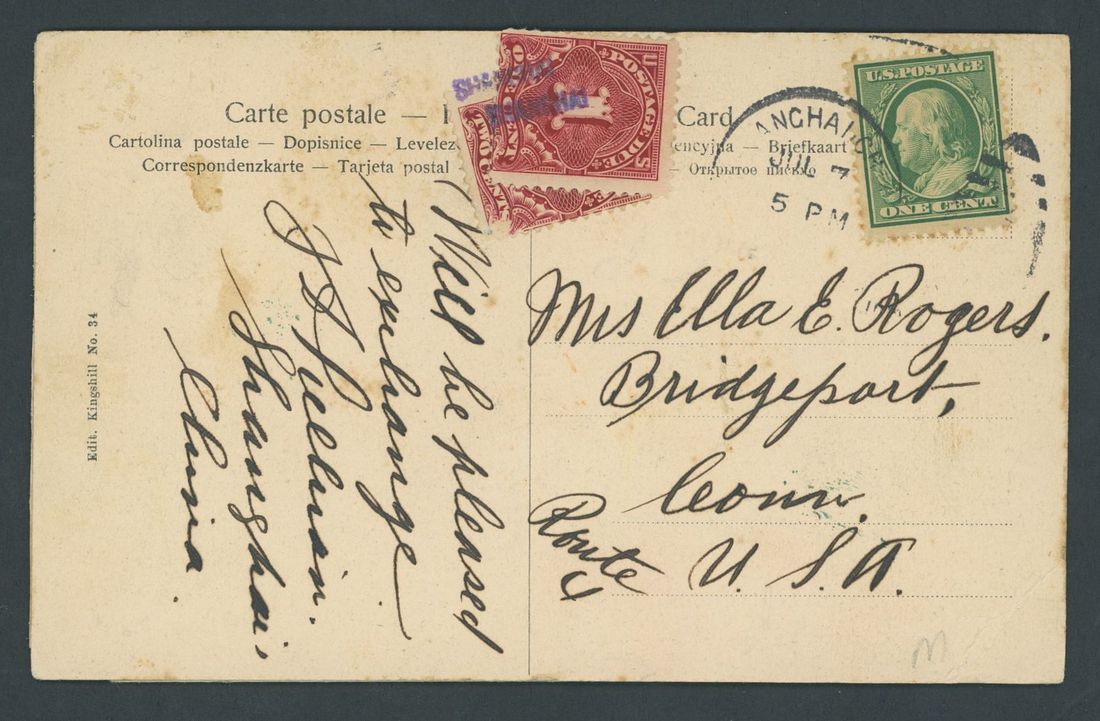 Carte postale —
Card
Cartolina postale — Dopisnice — Levelez
encyjna — Briefkaart
Correspondenzkarte — Tarjeta postal
— Открытое письмо
Edit. Kingshill No. 34
U.S. POSTAGE
ONE CENT
POSTAGE DUE
1
ANGHAI
JUL 7
5 PM
Will be pleased
to exchange
Shanghai,
China.
Mrs Ella E. Rogers.
Bridgeport,
Conn.
Route
4
U. S. A.
M